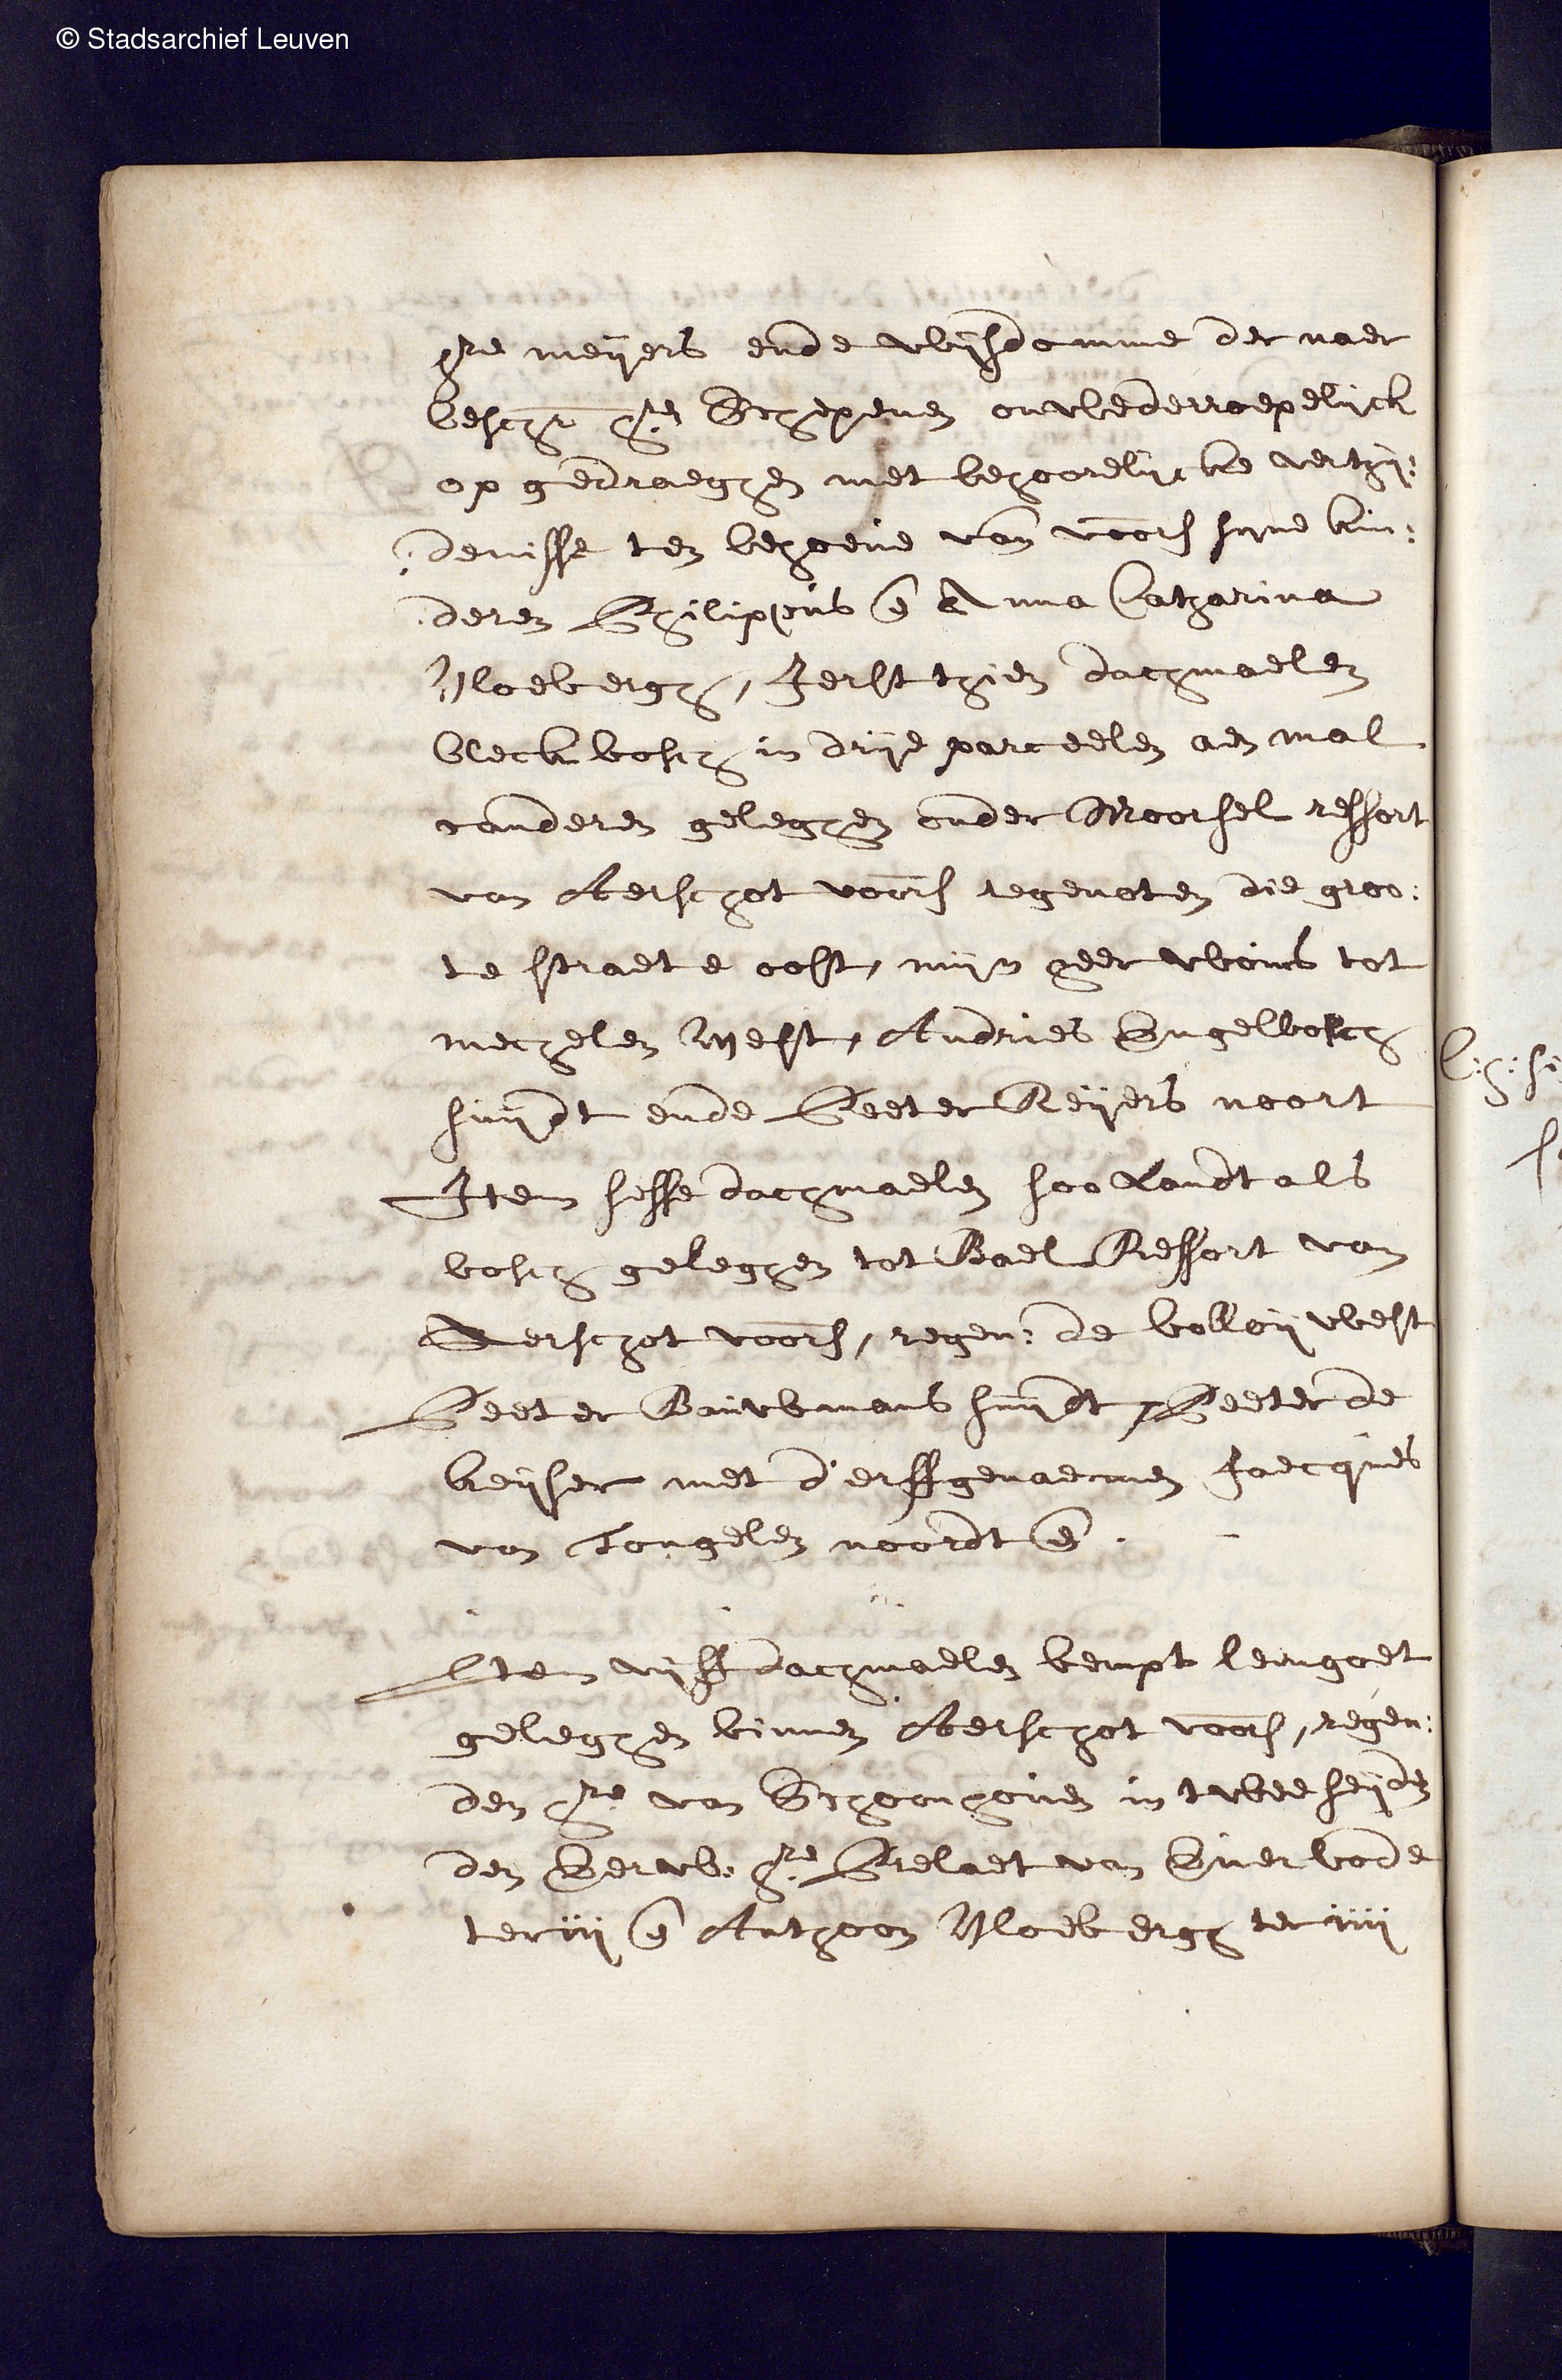 © Stadsarchief Leuven
hre meijers ende wijsdomme der naer
beschr hre Schepenen onwederroepelijck
op gedraeghen met behoorelijcke verthij:
:denisse ten behoeve van voors sijne kin:
:deren Philippus e Anna Catharina
Vloeberghs, Ierst thien dachmaelen
bleckbosch in drije parceelen aen mal
canderen geleghen onder Moorsel ressort
van Aerschot voors regenoten die groo:
te straete oost, mijn heer wouws tot
mechelen West, Andries Engelbosch
suijdt ende Peeter Reijers noort
Item sesse dachmaelen soo Landt als
bosch geleghen tot Bael Ressort van
Aerschot voors, regen: de bolloij west
Peeter Bauwmans suijdt, Peeter de
keijser met d'erffgenaemen Jacques
van Tongelen noordt e.
Item vijff dachmaelen bempt leengoet
geleghen binnen Aerschot voors, regen:
den hre van Schoonhoven in twee seijden
den Eerw: hre Prelaet van Everbode
ter iij e Anthoon Vloeberghs ter iiij